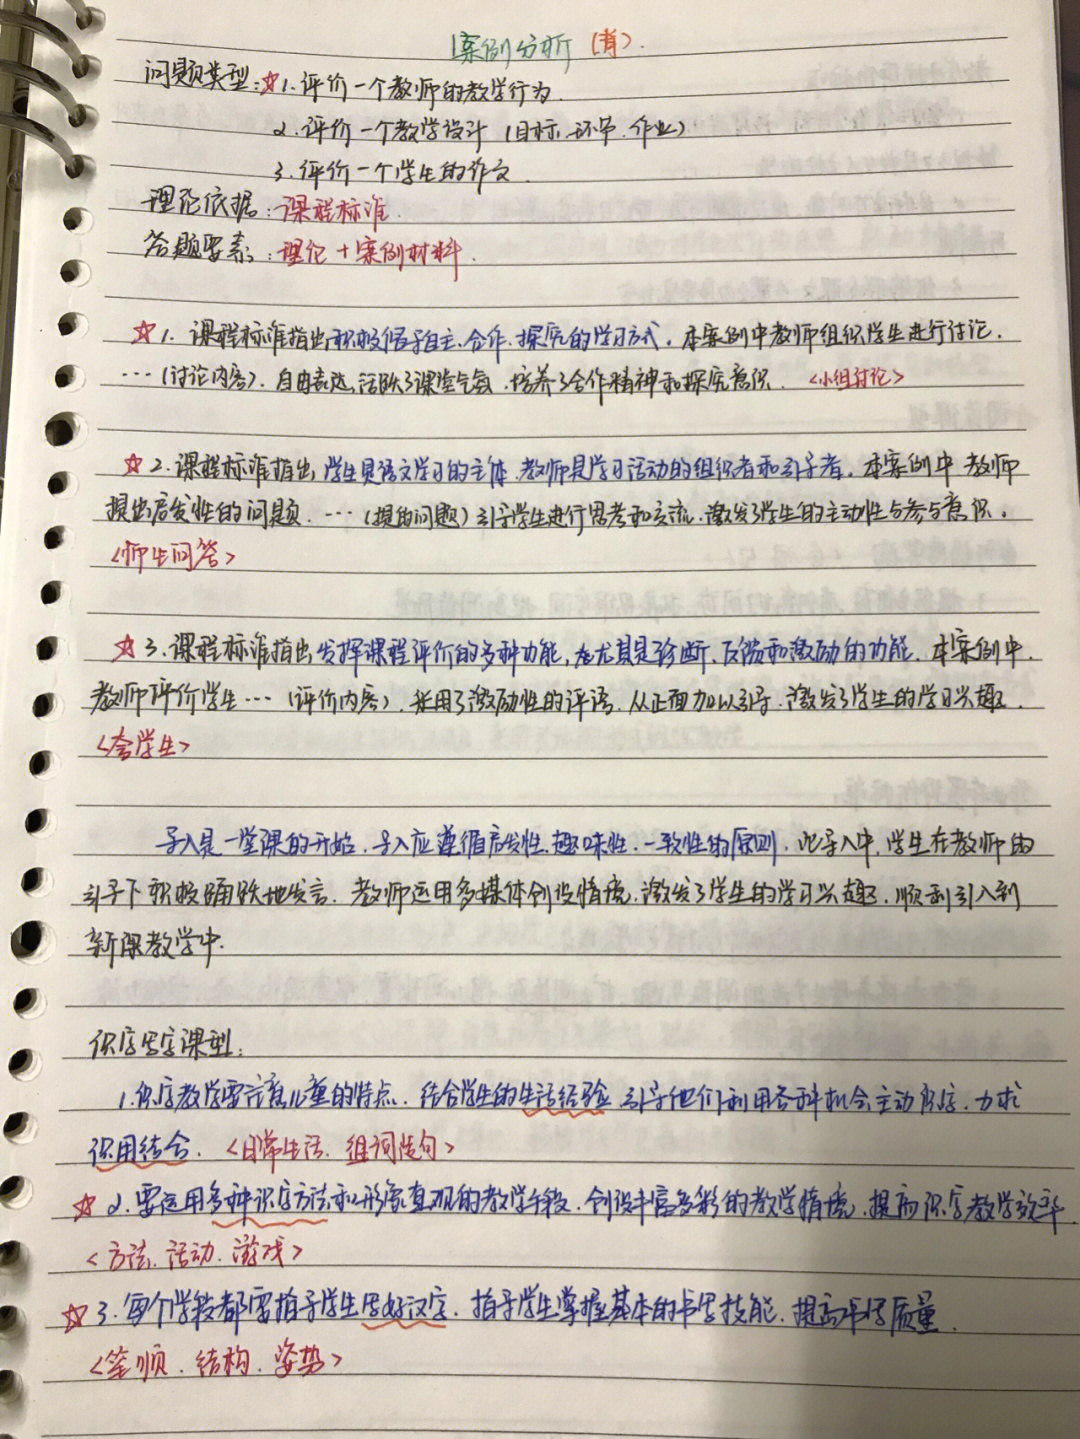 案例分析 (背).
问题类型:☆1.评价一个教师的教学行为.
2.评价一个教学设计(目标.环节.作业)
3.评价一个学生的作文.
理论依据:课程标准.
答题要素:理论+案例材料.
☆1.课程标准指出积极倡导自主、合作、探究的学习方式,本案例中教师组织学生进行讨论.
…(讨论内容),自由表达,活跃了课堂气氛,培养了合作精神和探究意识.<小组讨论>
☆2.课程标准指出,学生是语文学习的主体,教师是学习活动的组织者和引导者。本案例中教师
提出启发性的问题.…(提的问题)引导学生进行思考和交流,激发了学生的主动性与参与意识。
<师生问答>
☆3.课程标准指出发挥课程评价的多种功能,尤其是诊断、反馈和激励的功能.本案例中,
教师评价学生…(评价内容),采用了激励性的评语,从正面加以引导,激发了学生的学习兴趣.
<夸学生>
导入是一堂课的开始,导入应遵循启发性、趣味性、一致性的原则,此导入中,学生在教师的
引导下积极踊跃地发言,教师运用多媒体创设情境,激发了学生的学习兴趣,顺利引入到
新课教学中.
识字写字课型:
1.识字教学要注意儿童的特点,结合学生的生活经验,引导他们利用各种机会主动识字,力求
识用结合.<日常生活.组词造句>
☆2.要运用多种识字方法和形象直观的教学手段,创设丰富多彩的教学情境,提高识字教学效率.
<方法.活动.游戏>
☆3.每个学段都要指导学生写好汉字,指导学生掌握基本的书写技能,提高书写质量.
<笔顺.结构.姿势>